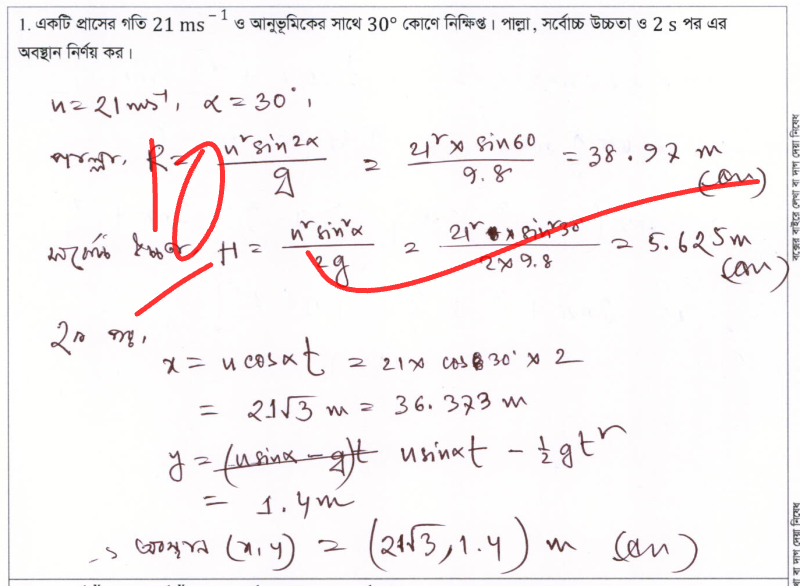 1. একটি প্রাসের গতি 21 ms⁻¹ ও আনুভূমিকের সাথে 30° কোণে নিক্ষিপ্ত। পাল্লা, সর্বোচ্চ উচ্চতা ও 2 s পর এর
অবস্থান নির্ণয় কর।
u = 21 ms⁻¹, α = 30°,
পাল্লা, R = u² sin2α / g = 21² × sin60 / 9.8 = 38.97 m (Ans)
10
সর্বোচ্চ উচ্চতা H = u² sin²α / 2g = 21² × sin²30 / 2×9.8 = 5.625 m (Ans)
2s পর,
x = u cosα t = 21 × cos 30° × 2
= 21√3 m = 36.373 m
y = (usinα - g)t usinαt - ½gt²
= 1.4 m
∴ অবস্থান (x, y) = (21√3, 1.4) m (Ans)
বক্সের বাইরে লেখা বা দাগ দেয়া নিষেধ